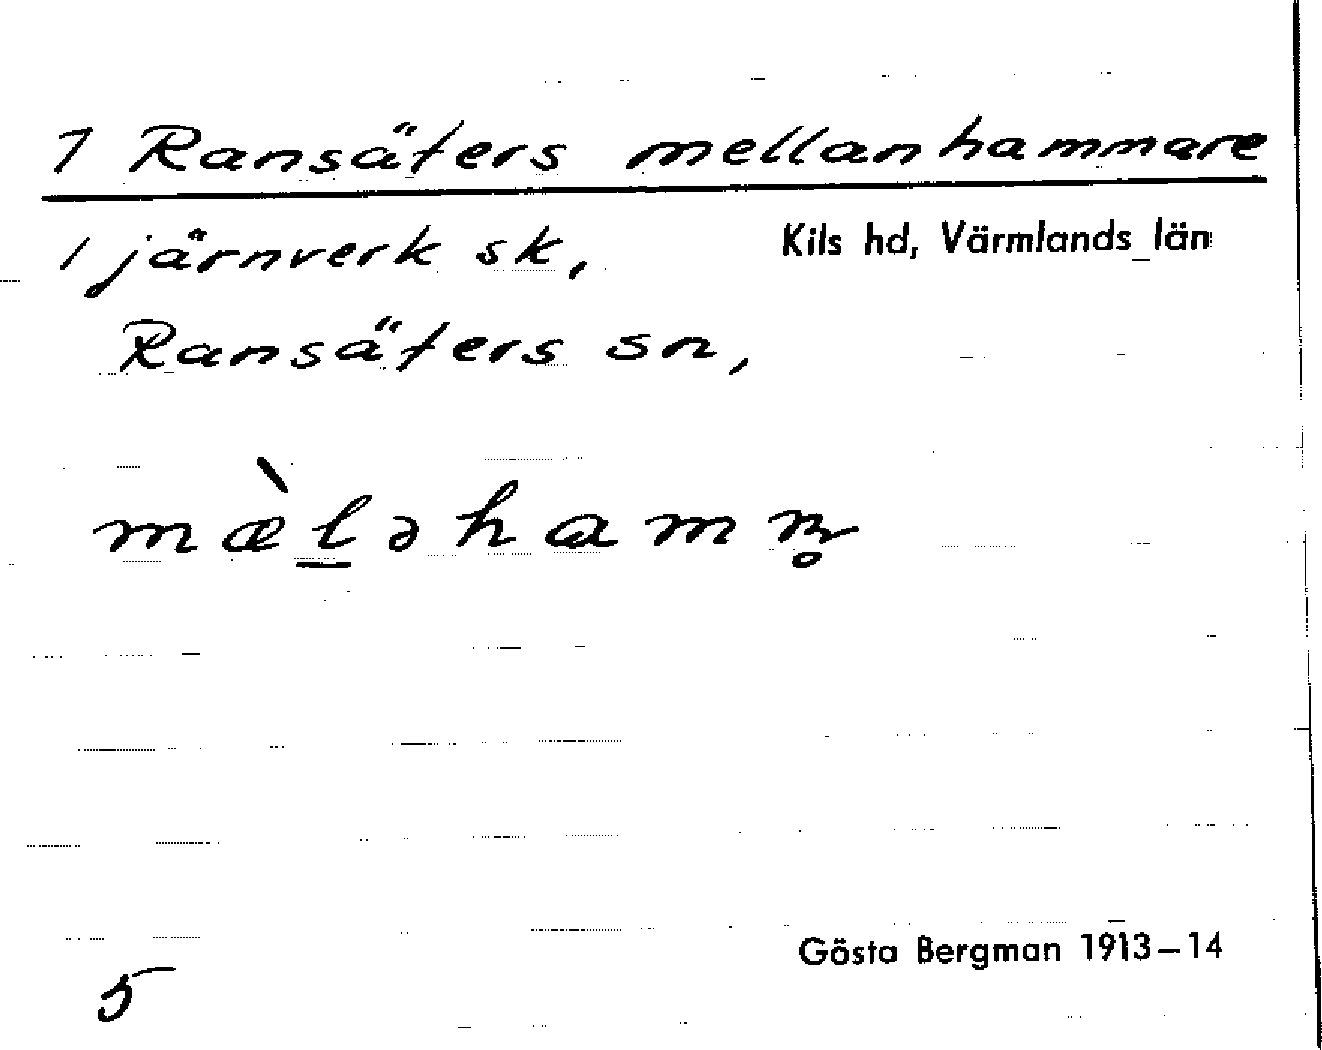 1 Ransäters mellanhammare
1 järnverk sk, Kils hd, Värmlands län
Ransäters sn,
mæ̀l̲əhamn̥
Gösta Bergman 1913–14
5